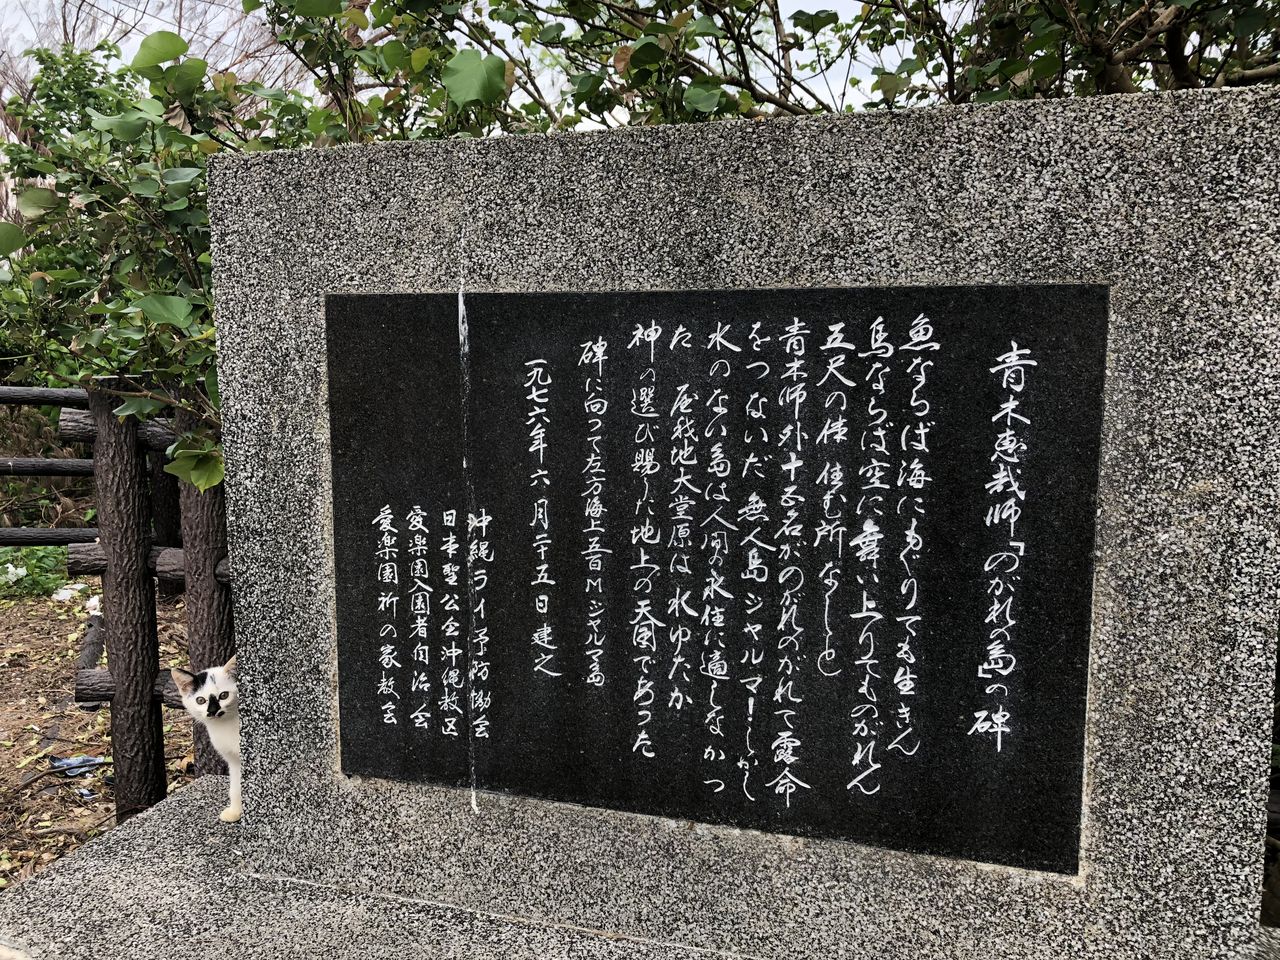 青木恵哉師「のがれの島」の碑
魚ならば海にもぐりても生きん
鳥ならば空に舞い上りてものがれん
五尺の体 住む所なしと
青木師外十五名がのがれのがれて露命
をつないだ 無人島ジャルマ！しかし
水のない島は人間の永住に適しなかつ
た 屋我地大堂原は水ゆたか
神の選び賜した地上の天国であった
碑に向つて左方海上五百Mジャルマ島
一九七六年六月二十五日建之
沖縄ライ予防協会
日本聖公会沖縄教区
愛楽園入園者自治会
愛楽園祈の家教会